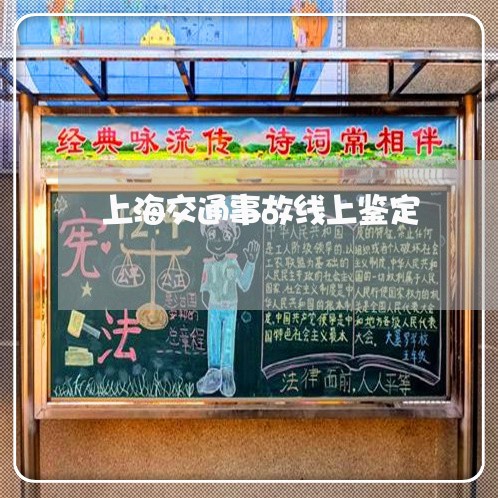 经典咏流传 诗词常相伴
上海交通事故线上鉴定
12.4
宪
法
公平
公正
总章程
中华人民共和国
是工人阶级领导的,以
工农联盟为基础的
人民民主专政的社会主义
国家,社会主义制度是中
华人民共和国的根本制
度,中国共产党领导是中
国特色社会主义最本
质的特征,禁止任何
组织或者个人破坏社会
主义制度,中华人民共和
国的一切权利属于人民,
人民行使国家权力的机
关是全国人民代表大会
和地方各级人民代表
大会.
五年级
法律面前,人人平等